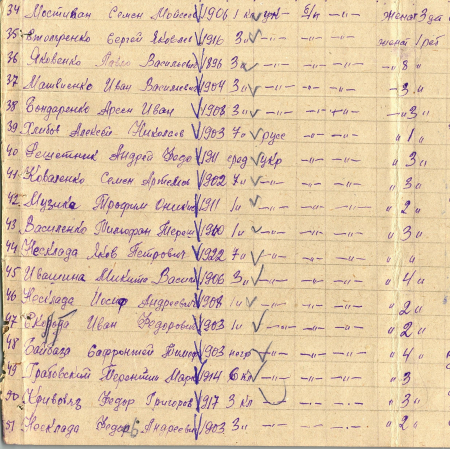 34 Мостиван Семен Моисее 1906 1 кл укр б/п —"— женат 3 дт
35 Столяренко Сергей Яковлев 1916 3 " —"— —"— —"— женат 1 реб
36 Яковенко Павло Василье 1896 3 " —"— —"— —"— —"— 8 "
37 Матвиенко Иван Василье 1904 3 " —"— —"— —"— —"— 3 "
38 Бондаренко Арсен Иван 1908 3 " —"— —"— —"— —"— 3 "
39 Хлибов Алексей Николаев 1903 7 " русс —"— —"— " 1 "
40 Решетник Андрей Федо 1911 сред укр —"— —"— " 3 "
41 Коваленко Семен Артемов 1902 7 " —"— —"— —"— " 3 "
42 Музыка Трофим 1911 1 " —"— —"— —"— " 2 "
43 Василенко 1900 1 " —"— —"— —"— " 3 "
44 Несклада Яков Петрович 1922 7 " —"— —"— —"— " "
45 Ивашина Микита Васил 1906 3 " —"— —"— —"— " 4 "
46 Несклада Иосиф Андреевич 1908 1 " —"— —"— —"— " 2 "
47 Иван Федорович 1903 1 " —"— —"— —"— " 2 "
48 Сайбаза Сафроний Тимоф 1903 негр —"— —"— —"— " 4 "
49 Грабовский Марк 1914 6 кл —"— —"— —"— " 3
50 Кривовяз Федор Григоров 1917 3 кл —"— —"— " 3 "
51 Несклада Федор Андреевич 1903 3 " —"— —"— —"— " 2 "